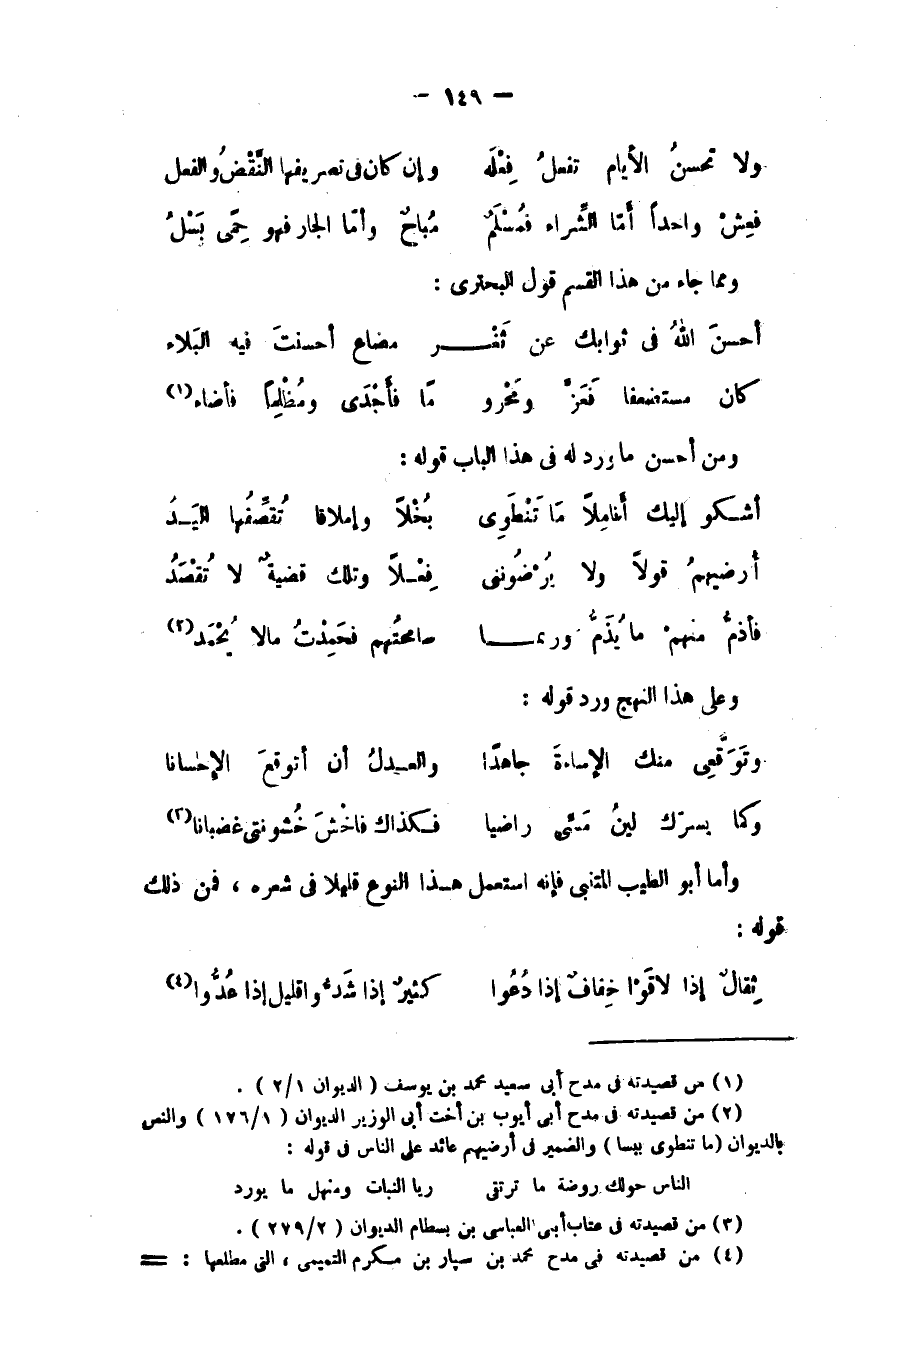 — ١٤٩ —
ولا تحسنُ الأيام تفعلُ فِعْلَه وإن كان فى تصريفها النَّقْضُ والفعل
فعِشْ واحداً أمّا الثَّراء فمُسْلَمٌ مُباحٌ وأمّا الجار فهو حِمًى بَسْلُ
ومما جاء من هذا القسم قول البحترى :
أحسنَ اللهُ فى ثوابك عن ثَغْـــر مضاع أحسنتَ فيه البَلاء
كان مستضعفا فَعَزَّ ومَحْرو مًا فأَجْدَى ومُظْلِمًا فأضاء(١)
ومن أحسن ما ورد له فى هذا الباب قوله :
أشـكو إليك أنامِلاً مَا تَنْطَوِى بُخْلاً وإملاقا تُقَصِّفُها اليَـدُ
أرضيهمُ قولاً ولا يُرْضُوننى فِعْـلاً وتلك قضيةٌ لا تُقْصَدُ
فأذمُّ منهمْ ما يُذَمُّ وربمـــا سامحتُهم فحَمِدْتُ مالا يُحْمَد(٢)
وعلى هذا النهج ورد قوله :
وتَوَقَّعِى منك الإساءةَ جاهدًا والعـدلُ أن أتوقعَ الإحسانا
وكما يسرّك لينُ مَسّى راضيا فـكذاك فاخْشَ خُشونتى غضبانا(٣)
وأما أبو الطيب المتنبى فإنه استعمل هـذا النوع قليلا فى شعره ، فمن ذلك
قوله :
ثِقالٌ إذا لاقَوْا خِفافٌ إذا دُعُوا كثيرٌ إذا شَدُّوا قليل إذا عُدُّوا(٤)
(١) من قصيدته فى مدح أبى سعيد محمد بن يوسف ( الديوان ٢/١ ) .
(٢) من قصيدته فى مدح أبى أيوب بن أخت أبى الوزير الديوان ( ١٧٦/١ ) والنص
بالديوان (ما تنطوى ببسا ) والضمير فى أرضيهم عائد على الناس فى قوله :
الناس حولك روضة ما ترتقى ريا النبات ومنهل ما يورد
(٣) من قصيدته فى عتاب أبى العباس بن بسطام الديوان ( ٢٧٩/٢ ) .
(٤) من قصيدته فى مدح محمد بن سيار بن مكرم التميمى ، التى مطلعها : =